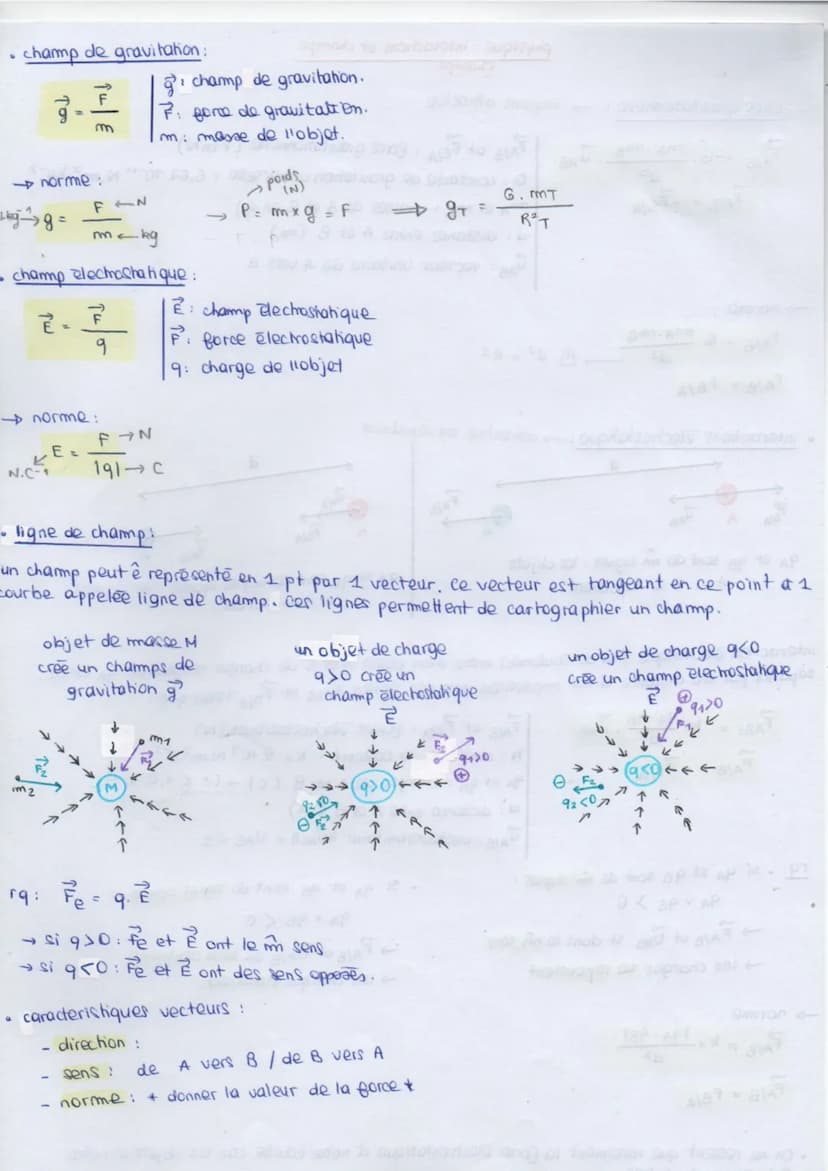 • champ de gravitation :
g = F / m
g : champ de gravitation.
F : force de gravitation.
m : masse de l'objet.
→ norme :
g = F ← N / m ← kg
→ P = m x g = F ⟹ gT = G . mT / R²T
poids (N)
• champ électrostatique :
E = F / q
E : champ électrostatique
F : force électrostatique
q : charge de l'objet
→ norme :
E = F → N / |q| → C
N.C⁻¹
• ligne de champ :
un champ peut ê représenté en 1 pt par 1 vecteur. ce vecteur est tangeant en ce point à 1
courbe appelée ligne de champ. Ces lignes permettent de cartographier un champ.
objet de masse M
crée un champs de
gravitation g
m1
F1
F2
m2
M
un objet de charge
q>0 crée un
champ électrostatique
E
q1>0
⊕
q>0
q2<0
⊖ F2
un objet de charge q<0
crée un champ électrostatique
E
⊕ q1>0
F1
q<0
⊖ F2
q2<0
rq : Fe = q . E
→ si q>0 : Fe et E ont le m̂ sens
→ si q<0 : Fe et E ont des sens opposés.
• caracteristiques vecteurs :
- direction :
- sens : de A vers B / de B vers A
- norme : + donner la valeur de la force *